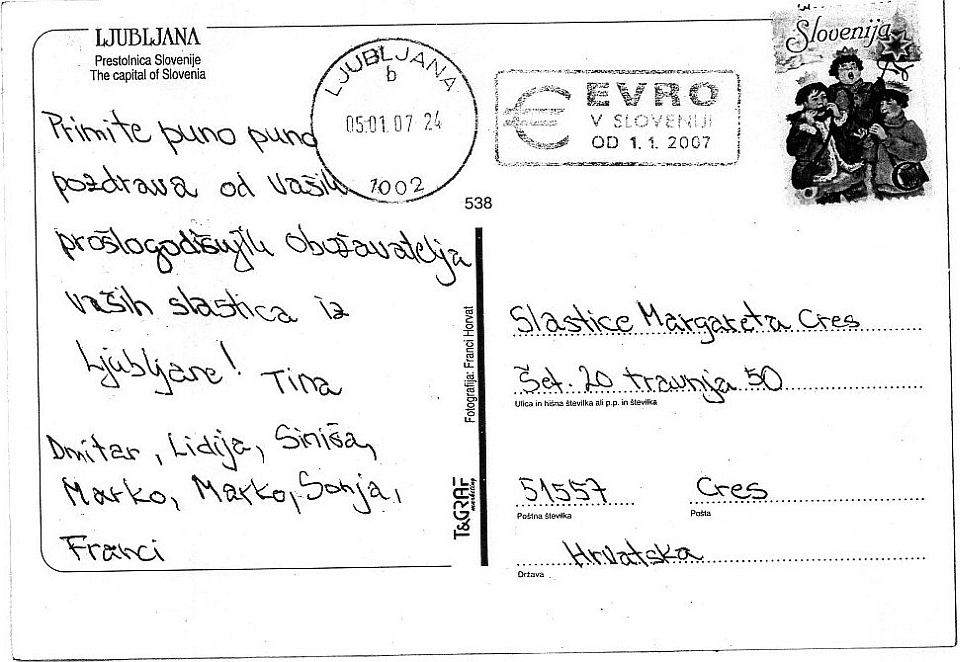 LJUBLJANA
Prestolnica Slovenije
The capital of Slovenia
Primite puno puno
pozdrava od vaših
prošlogodišnjih obožavatelja
vaših slastica iz
Ljubljane! Tina
Dmitar, Lidija, Siniša,
Marko, Marko, Sonja,
Franci
LJUBLJANA
b
05.01.07 24
1002
EVRO
V SLOVENIJI
OD 1. 1. 2007
Slovenija
538
Fotografija: Franci Horvat
T&GRAF
marketing
Slastice Margareta Cres
Šet. 20 travnja 50
Ulica in hišna številka ali p.p. in številka
51557 Cres
Poštna številka Pošta
Hrvatska
Država